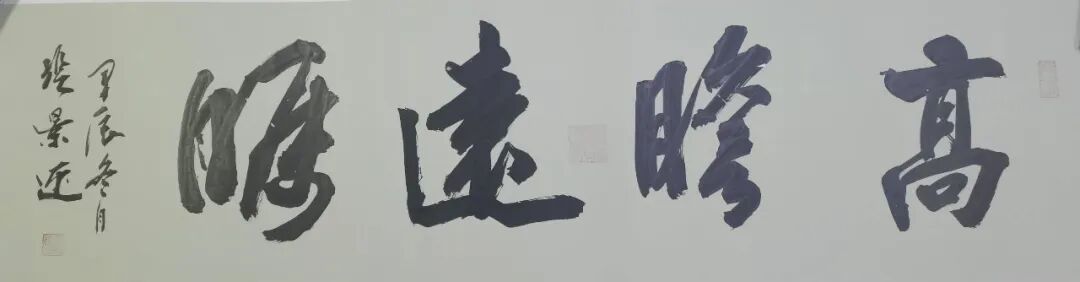 高瞻遠矚
甲辰冬月
張景近